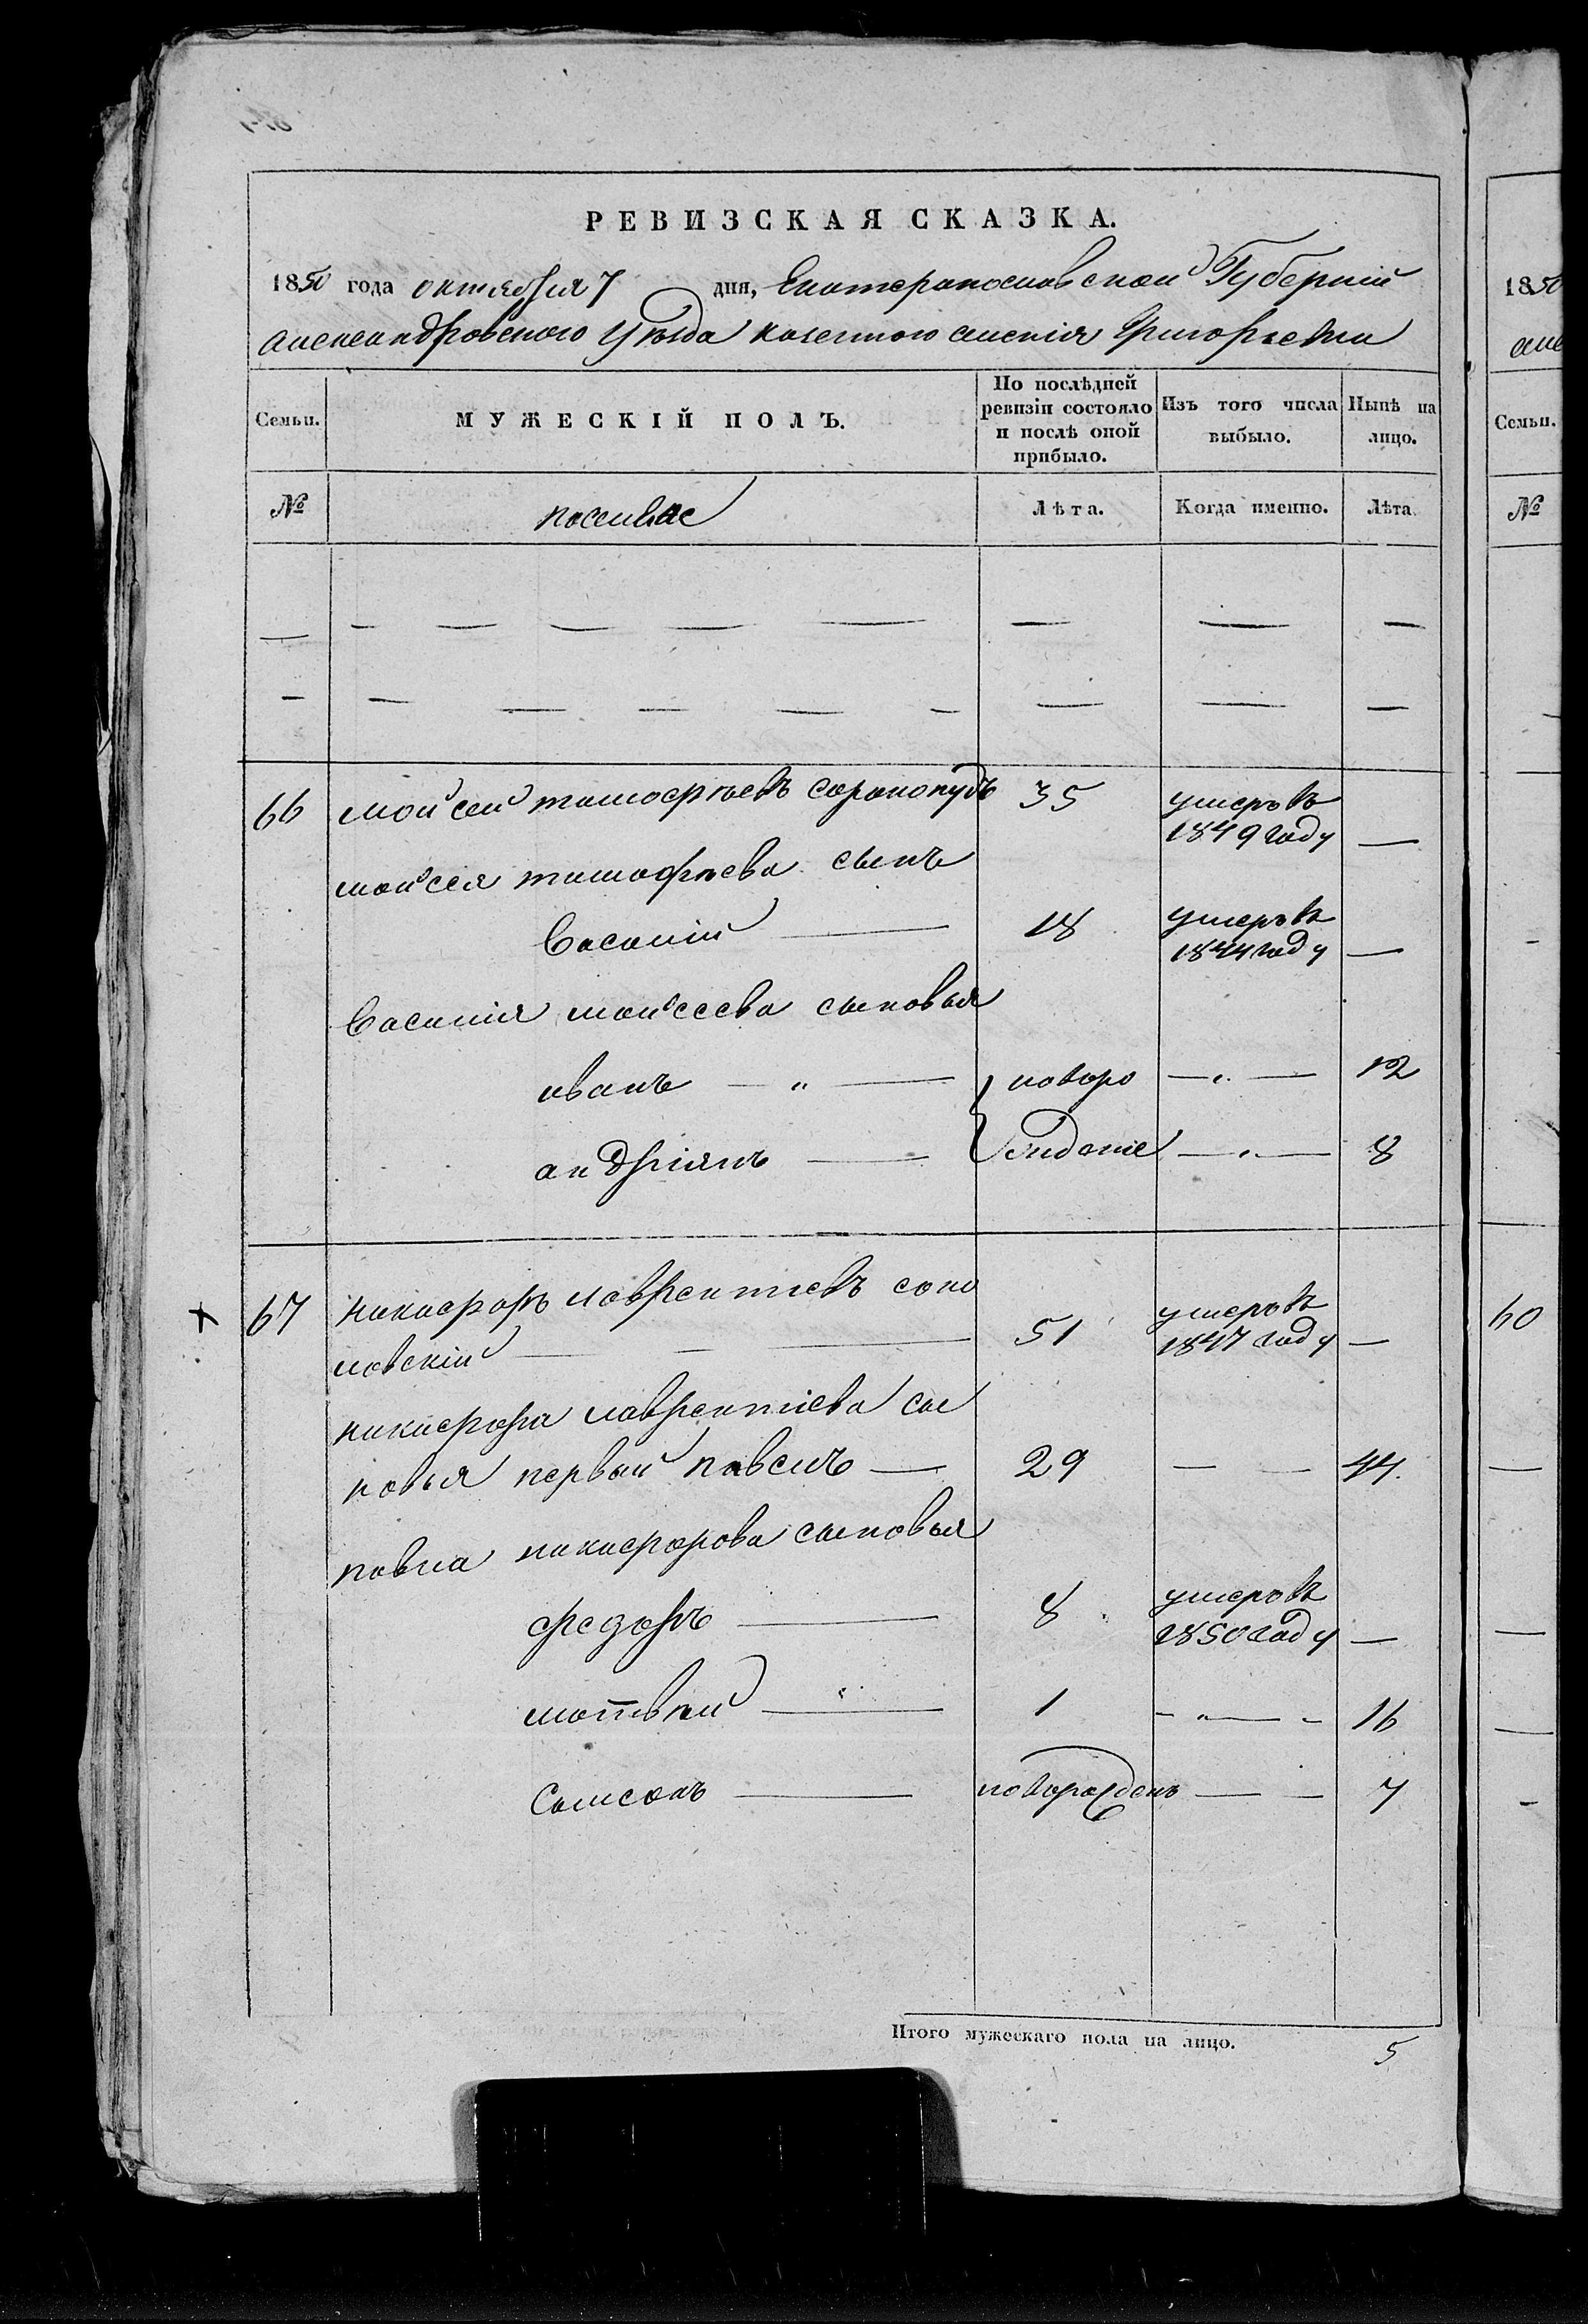 РЕВИЗСКАЯ СКАЗКА.
1850 года октября 7 дня, Екатеринославской Губерніи
александровского уѣзда казенного селенія Григорьевки
Семьи. МУЖЕСКІЙ ПОЛЪ. По послѣдней ревизіи состояло и послѣ оной прибыло. Изъ того числа выбыло. Нынѣ на лицо.
№ Лѣта. Когда именно. Лѣта
66 моисей тимофѣевъ сорокопудъ 35 умеръ въ 1849 году —
моисея тимофѣева сынъ
Василій — 18 умеръ въ 1844 году —
Василія моисеева сыновья
иванъ — " — новоро — " — 12
андріянъ — жденые — " — 8
67 никифоръ лаврентіевъ соко
ловскій — 51 умеръ въ 1847 году —
никифора лаврентіева сы
новья первый павелъ — 29 — — 44.
павла никифорова сыновья
федоръ — 8 умеръ въ 1850 году —
матвѣй — " — 1 — " — 16
Самсонъ — новорожденъ — — 7
Итого мужескаго пола на лицо. 5
1850
але
Семьи.
№
60